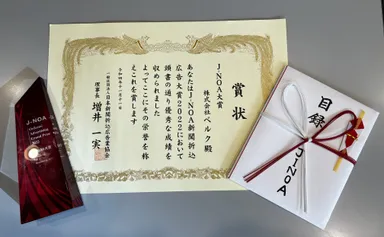 賞状
J-NOA大賞
株式会社ベルク殿
あなたはJ-NOA新聞折込
広告大賞2022において
頭書の通り優秀な成績を
収められました
よってここにその栄誉を称
えこれを賞します
令和四年十一月十一日
一般社団法人日本新聞折込広告業協会
理事長 増井一実
J-NOA
目録
J-NOA